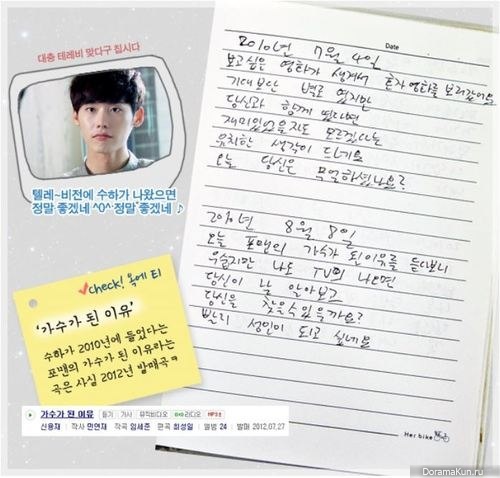 대충 테레비 맞다구 칩시다
텔레~비전에 수하가 나왔으면
정말 좋겠네 ^0^ 정말 좋겠네 ♪
check! 옥에 티
'가수가 된 이유'
수하가 2010년에 들었다는
포맨의 가수가 된 이유라는
곡은 사실 2012년 발매곡ㅋ
가수가 된 이유 듣기 | 가사 | 뮤직비디오 | 라디오 | MP3
신용재 | 작사 민연재 작곡 임세준 편곡 최성일 | 앨범 24 | 발매 2012.07.27
Date
2010년 7월 4일
보고싶은 영화가 생겨서 혼자 영화를 보러갔어요
기대보단 별로 였지만
당신과 함께 였다면
재미있었을지도 모르겠다는
유치한 생각이 드네요
오늘 당신은 무얼하셨나요?
2010년 8월 8일
오늘 포맨의 가수가 된 이유를 듣다보니
우습지만 나도 TV에 나오면
당신이 날 알아보고
당신을 찾을수 있을까요?
빨리 성인이 되고 싶네요
Her bike
DoramaKun.ru